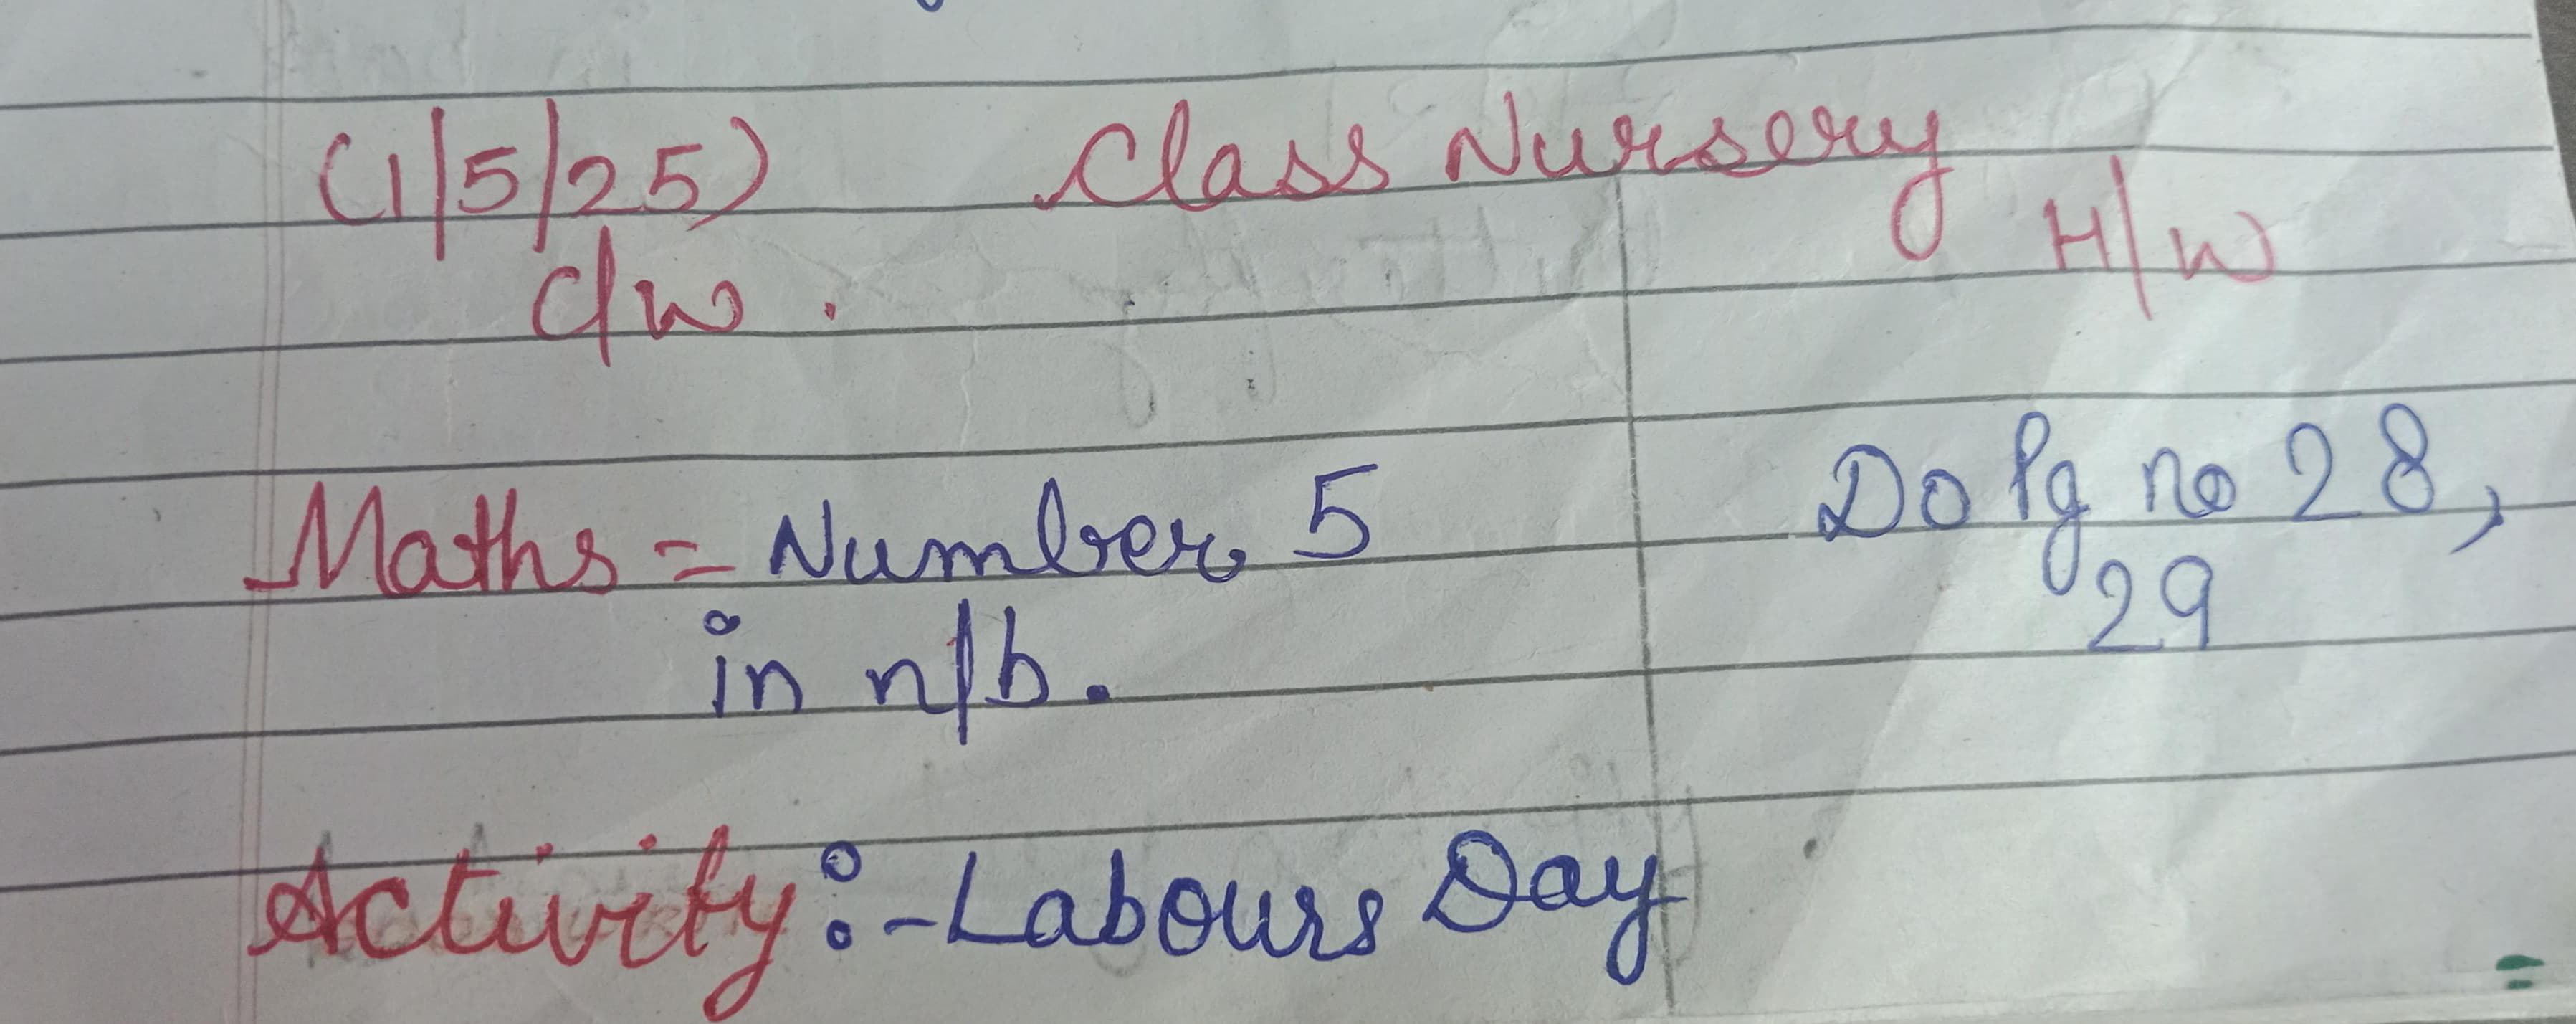 (1/5/25) Class Nursery
C/w. H/W
Maths = Number 5 Do Pg no 28,
in n/b. 29
Activity:- Labours Day